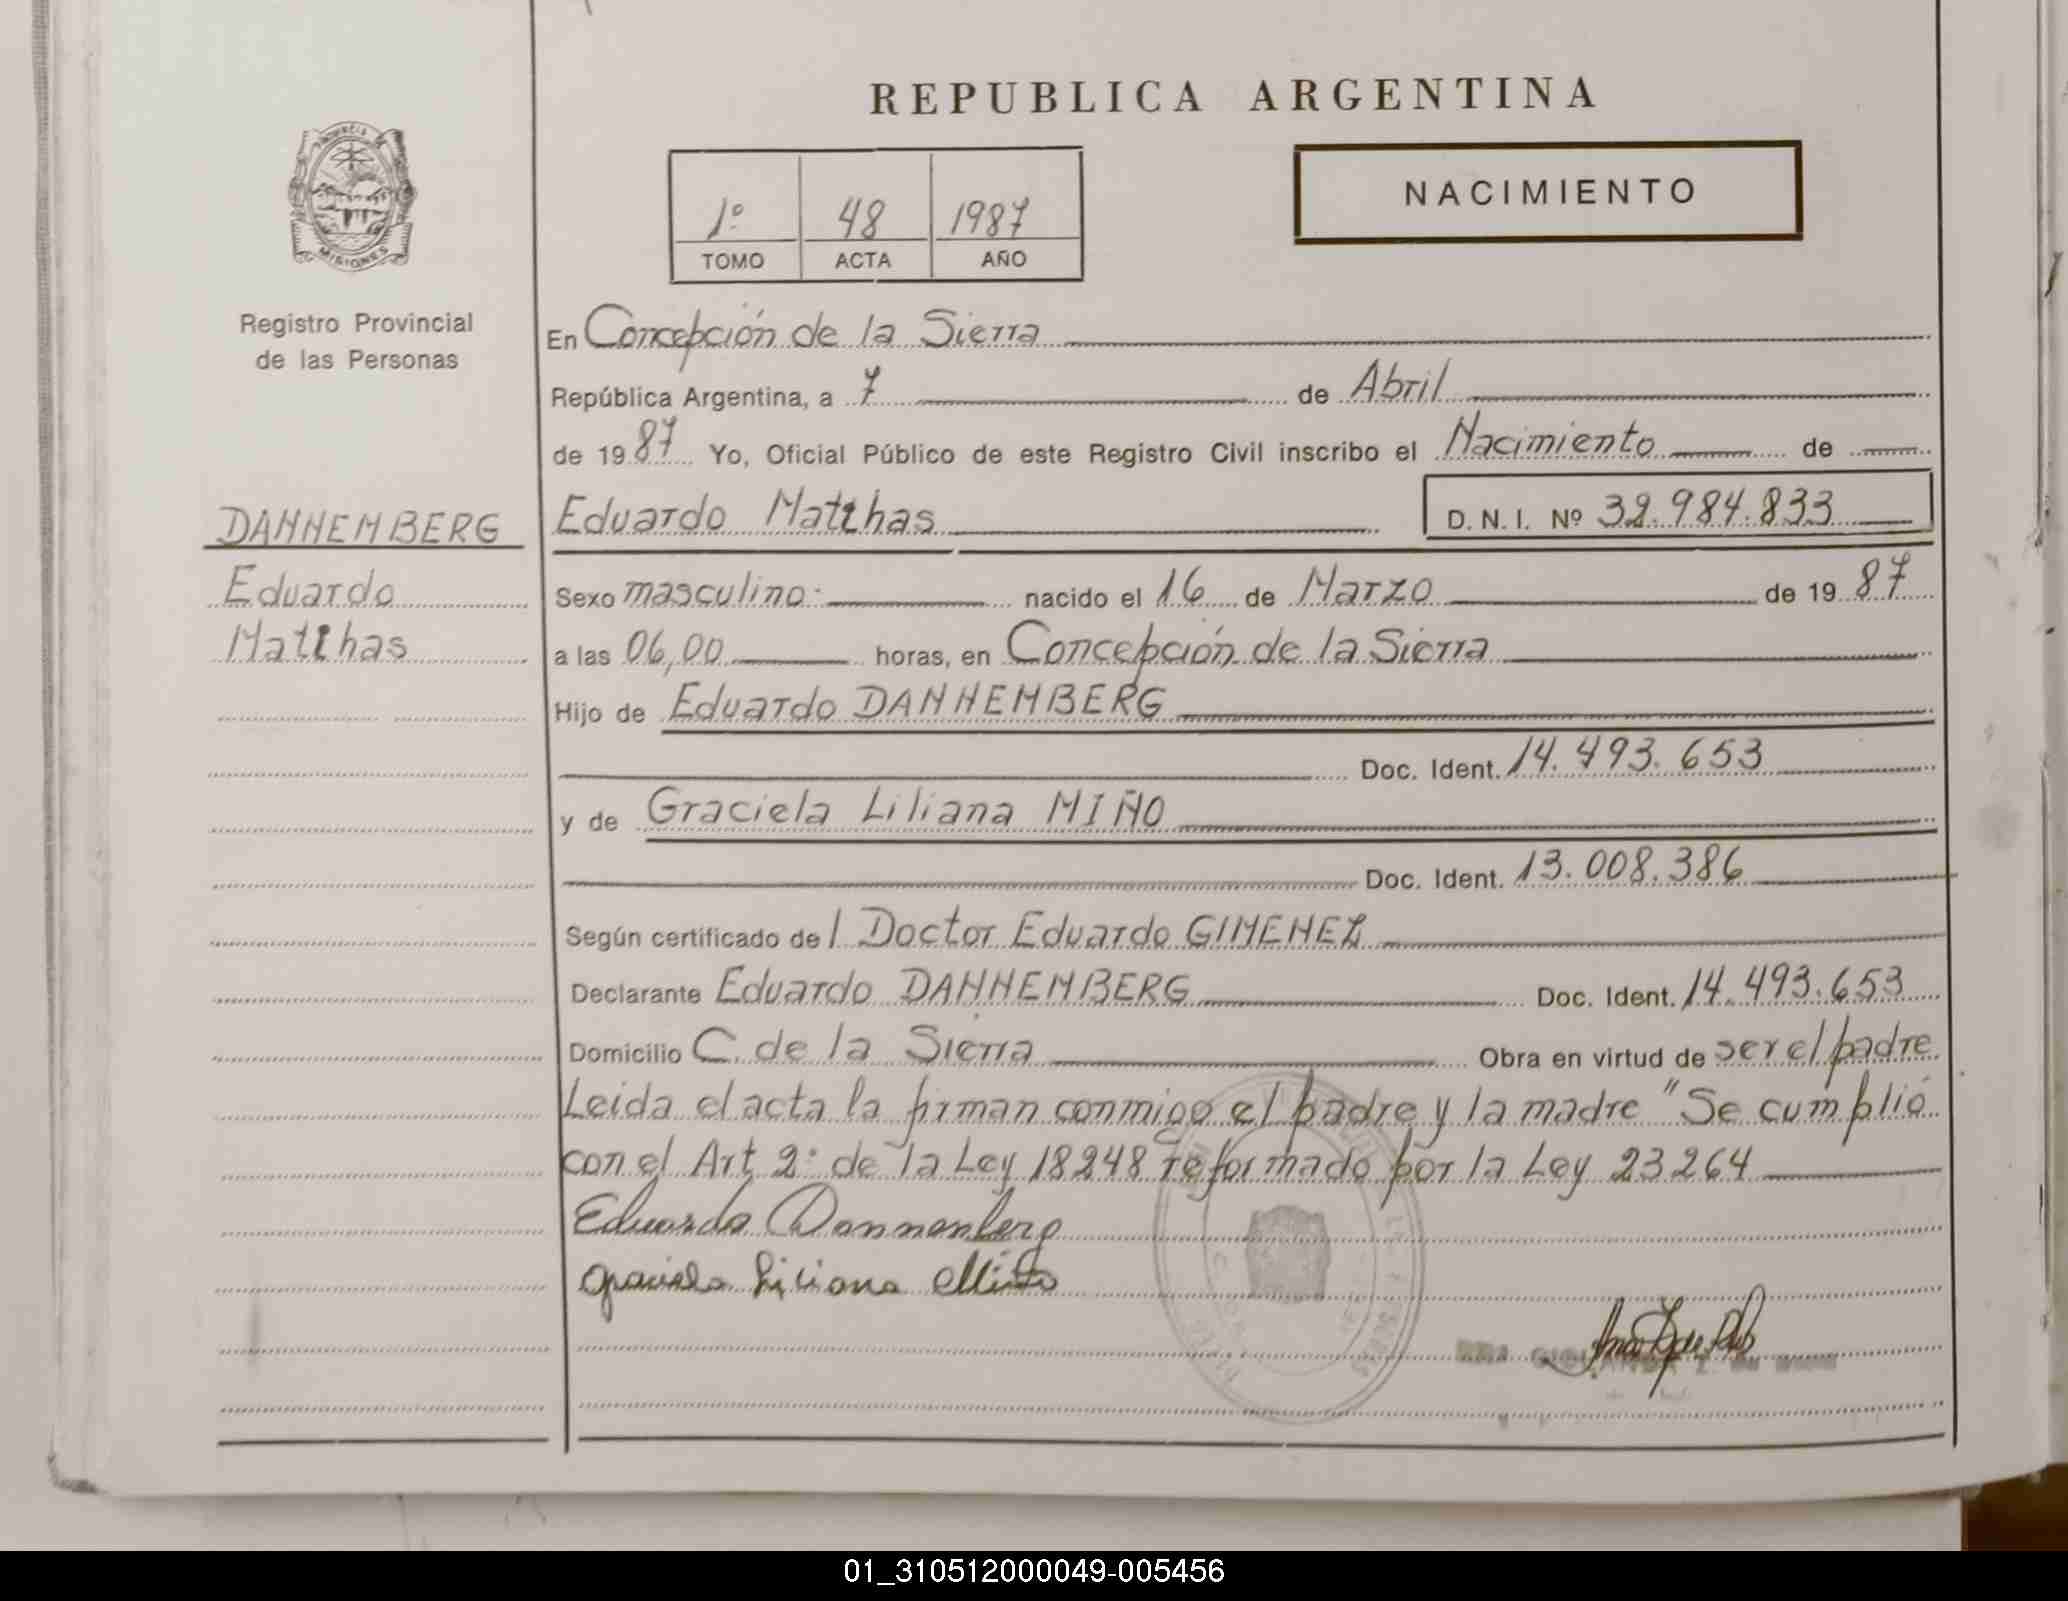 REPUBLICA ARGENTINA
1º 48 1987
TOMO ACTA AÑO
NACIMIENTO
PROVINCIA DE
MISIONES
Registro Provincial
de las Personas
DANNEMBERG
Eduardo
Matthas
En Concepción de la Sierra
República Argentina, a 7 de Abril
de 1987 Yo, Oficial Público de este Registro Civil inscribo el Nacimiento de
Eduardo Matthas D.N.I. Nº 32.984.833
Sexo masculino. nacido el 16 de Marzo de 1987
a las 06,00 horas, en Concepción de la Sierra
Hijo de Eduardo DANNEMBERG
Doc. Ident. 14.493.653
y de Graciela Liliana MIÑO
Doc. Ident. 13.008.386
Según certificado del Doctor Eduardo GIMENEZ
Declarante Eduardo DANNEMBERG Doc. Ident. 14.493.653
Domicilio C. de la Sierra Obra en virtud de ser el padre
Leida el acta la firman conmigo el padre y la madre "Se cumplió
con el Art. 2º de la Ley 18248 reformado por la Ley 23264
Eduardo Dannenberg
Graciela Liliana Miño
01_310512000049-005456